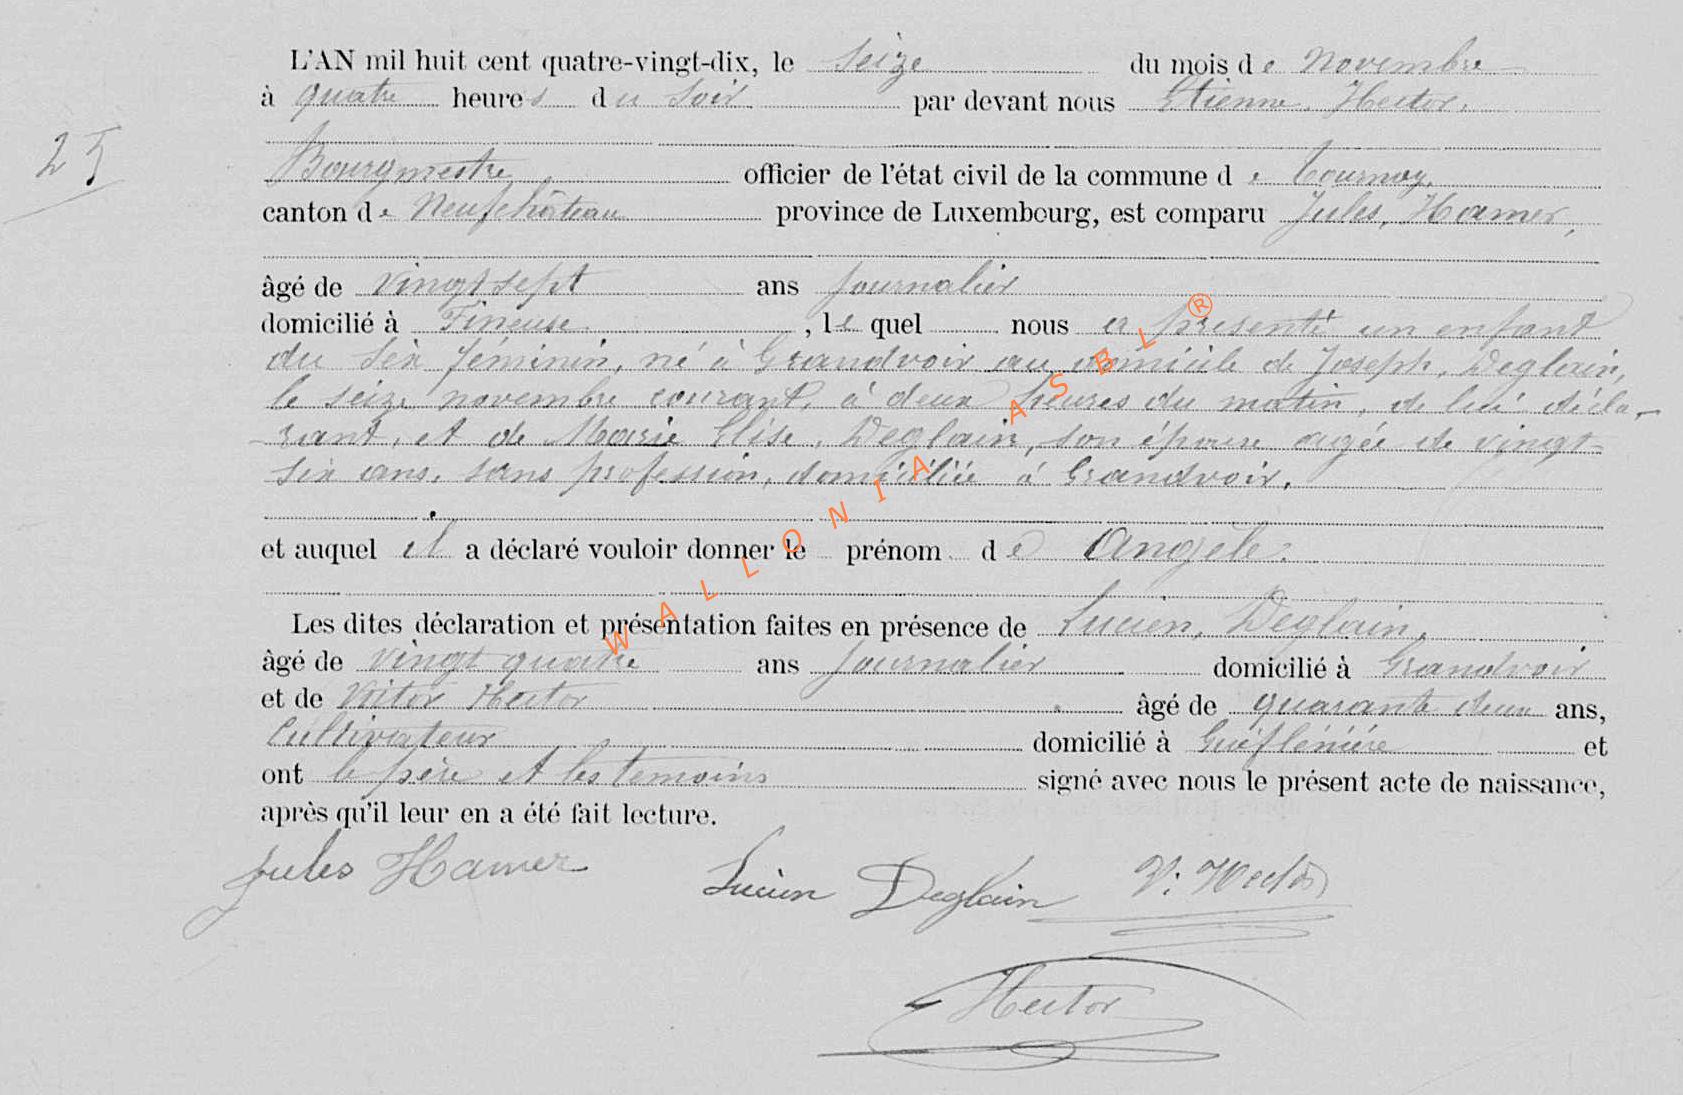 L'AN mil huit cent quatre-vingt-dix, le seize du mois de Novembre
à quatre heures du soir par devant nous Etienne, Hector,
25
Bourgmestre officier de l'état civil de la commune de Tournay,
canton de Neufchâteau province de Luxembourg, est comparu Jules, Hamer,
âgé de vingt sept ans journalier
domicilié à Fineuse, le quel nous a présenté un enfant
du séx féminin, né à Grandvoir au domicile de Joseph, Deglain,
le seize novembre courant, à deux heures du matin, de lui décla-
rant, et de Marie Elise, Deglain, son épouse agée de vingt
six ans, sans profession, domiciliée à Grandvoir.
et auquel il a déclaré vouloir donner le prénom de Angèle.
Les dites déclaration et présentation faites en présence de Lucien, Deglain,
âgé de vingt quatre ans journalier domicilié à Grandvoir
et de Victor Hector âgé de quarante deux ans,
Cultivateur domicilié à et
ont le père et les temoins signé avec nous le présent acte de naissance,
après qu'il leur en a été fait lecture.
Jules Hamer Lucien Deglain V. Hector
Hector
WALLONIA ASBL ®